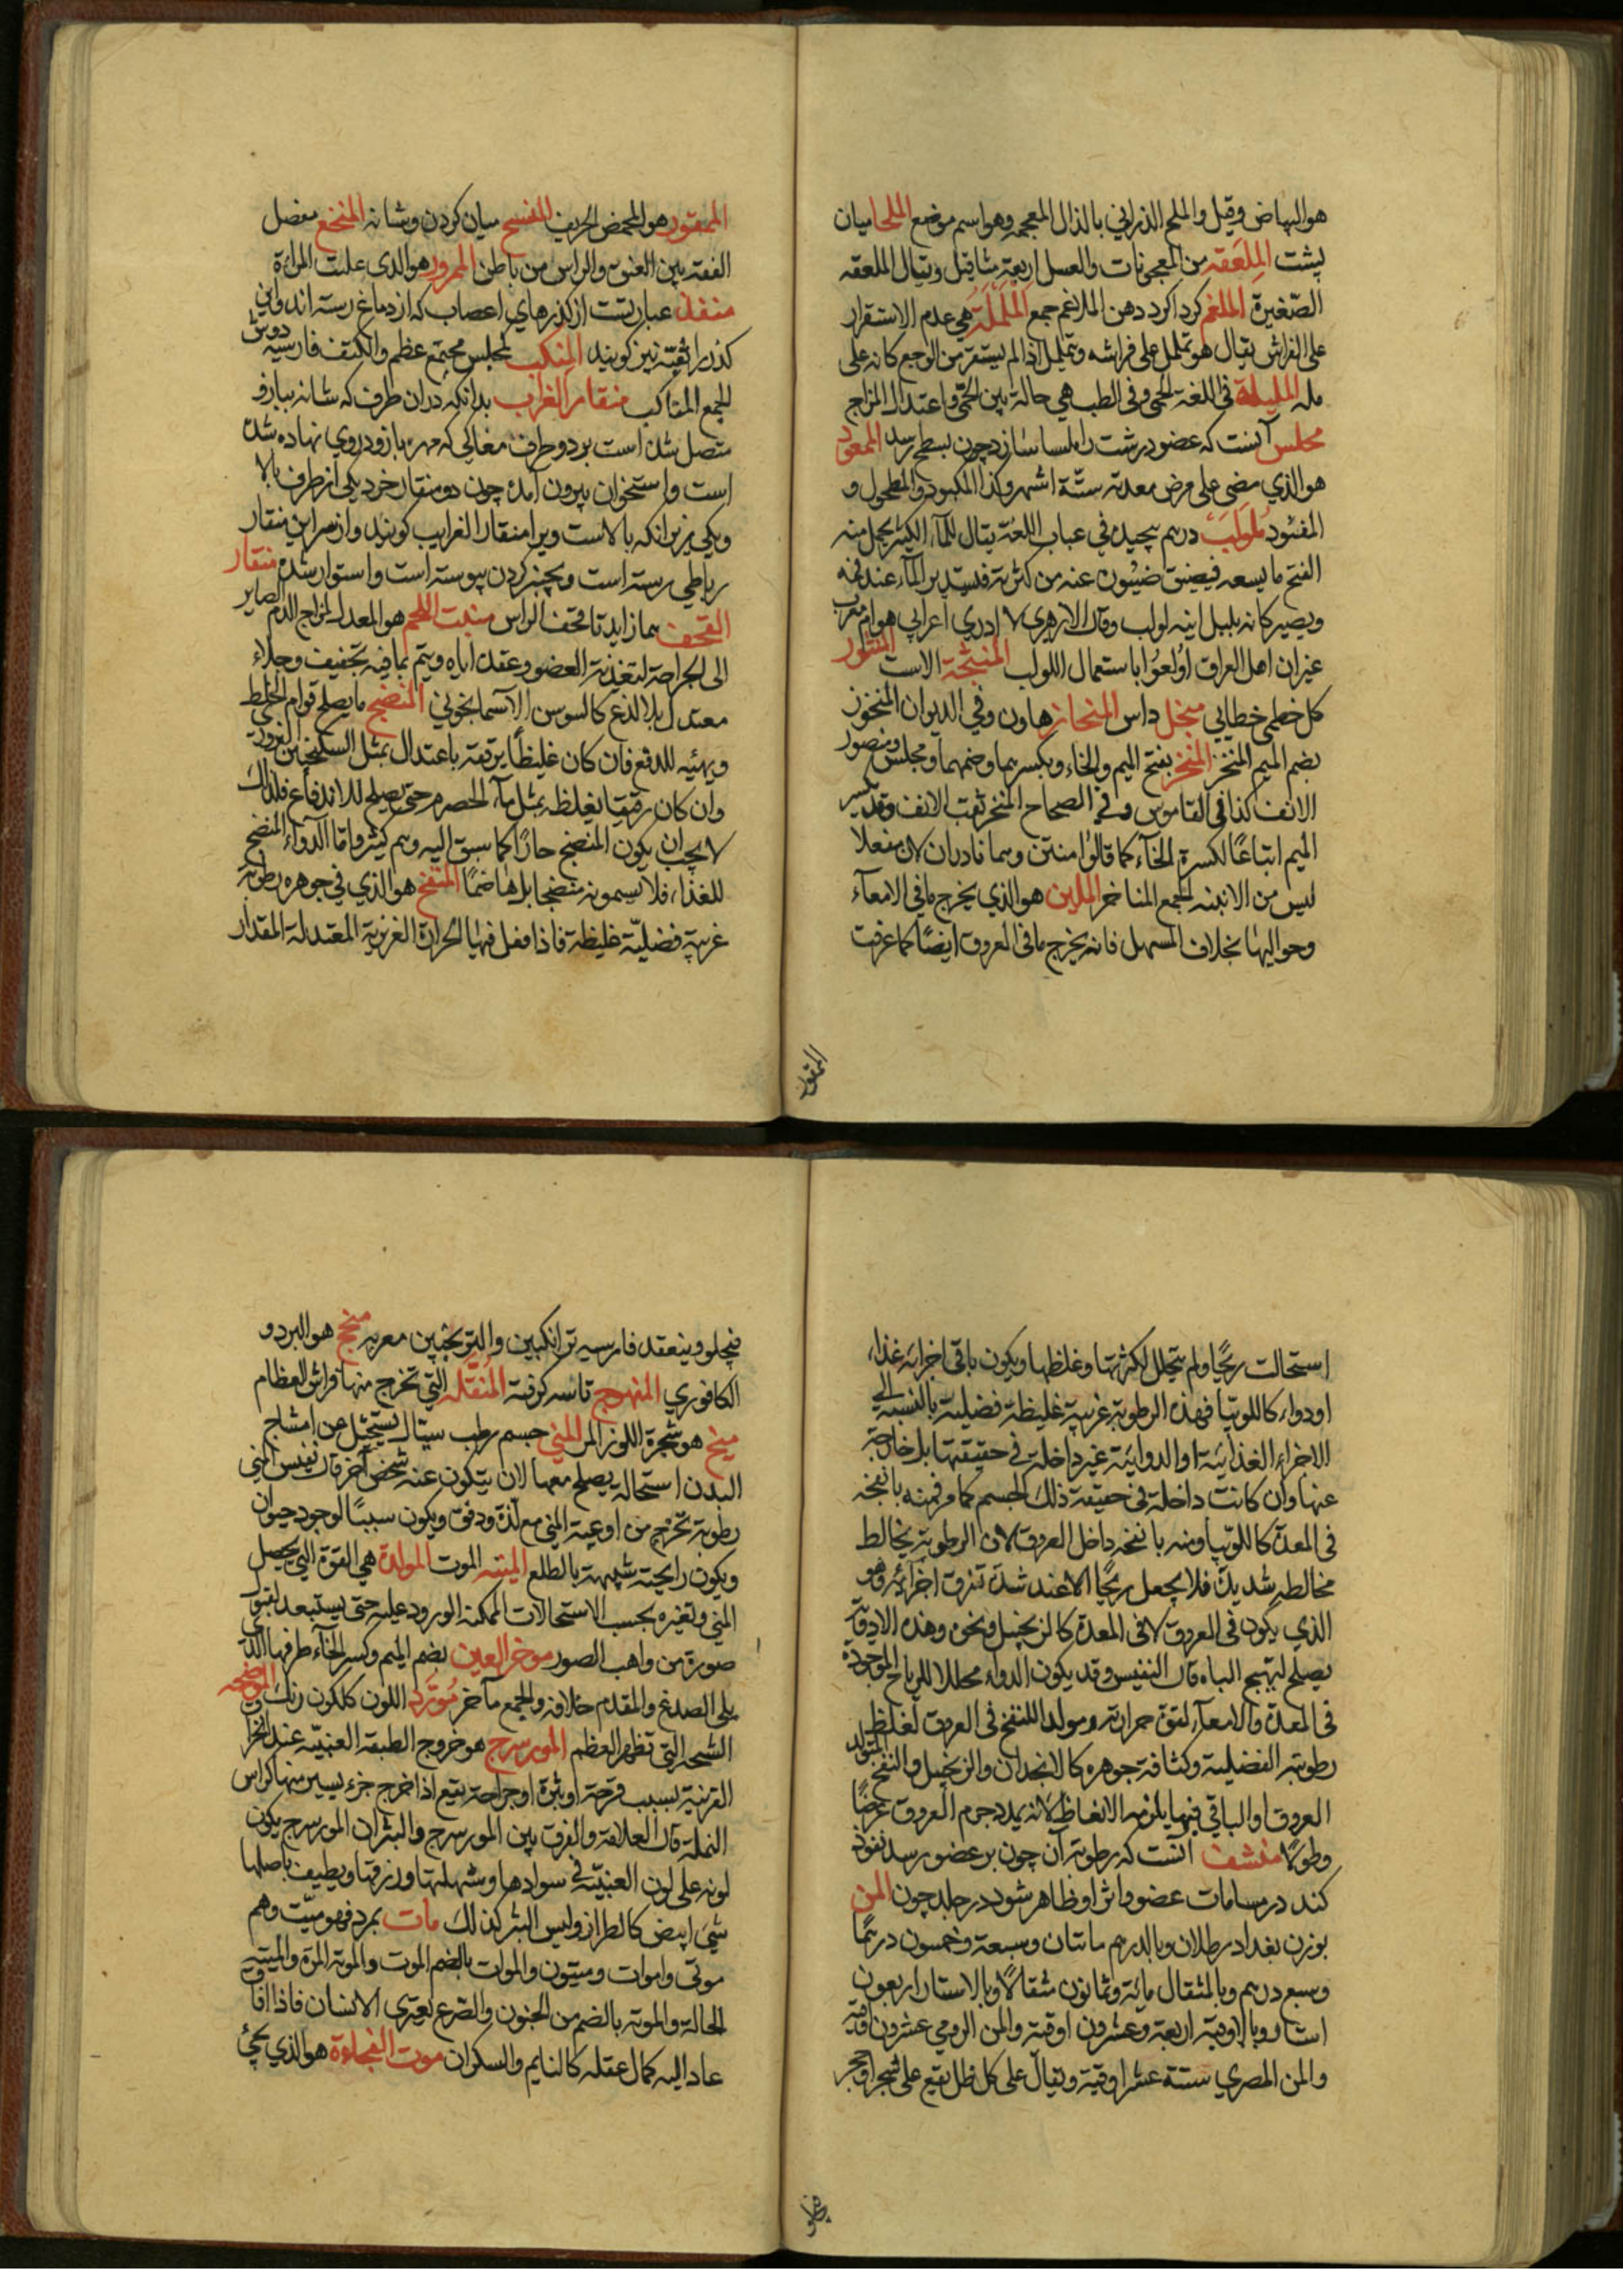 هو البهاض وقيل والملح الذراني بالذال المعجمه وهو اسم موضع الملحا ميان
پشت المِلعَقه من المعجونات والعسل اربعة مثاقيل ويقال الملعقه
الصّغيرة الملغم كرداكرد دهن الملاغم جمع المَلمَلَة هي عدم الاستقرار
على الفراش يقال هو يتململ على فراشه ويتململ اذا لم يستقر من الوجع كانه على
مله المليلة في اللغة الحمى وفي الطب هي حالة بين الحمّى واعتدال المزاج
مملس آنست كه عضو درشت را ملسا سازد چون بسطح رسد الممعود
هو الذي مضى على مرض معدته ستّة اشهر وكذا المكبود والمطحول و
المفئود مُلَولَب درهم پيچيده في عباب اللغة يقال للمآء الكثير يحمل منه
الفتح ما يسعه فيضيق ضيبون عنه من كثرته فيستدير المآء عند فمه
ويصير كانه بلبل انيه لولب وقال الازهري لا ادري اعرابي هو ام معرب
غير ان اهل العراق اولعُوا باستعمال اللولب المنثجة الاست المنثور
كل خطمى خطايي منجل داس المنحاز هاون وفي الديوان المنخوز
بضم الميم المنخر المنخر بفتح الميم والخاء وبكسرهما وضمهما ومجلس ومنصور
الانف كذا في القاموس وفي الصحاح المنخر ثقب الانف وقد يكسر
الميم اتباعًا لكسرة الخآء كما قالوا منتن وهما نادران لان مفعلا
ليس من الابنيه الجمع المناخر الملين هو الذي يخرج ما في الامعآء
وحواليها بخلاف المسهل فانه يخرج ما في العروق ايضًا كما عرفت
الممقور
الممقور هو المحمض الحريف المنسج ميان كردن وشانه المنخع مفصل
الفقه بين العنق والراس من باطن الممرور هو الذي علبت المراءة
منفذ عبارتست از كذرهاي اعصاب كه از دماغ رسته اند واين
كذر را ثقبه نيز كويند المنكب كمجلس مجتمع عظم والكتف فارسيه دوش
الجمع المناكب منقار الغراب بدانكه دران طرف كه شانه ببازو
متصل شده است بر دو طرف مغاكي كه مهره بازو دروي نهاده شده
است واستخوان بيرون آمده چون دو منقار خرد يكي از طرف بالا
ويكي زير انكه بالاست ويرا منقار الغراب كويند واز سر اين منقار
رباطي رسته است وبچنبر كردن پيوسته است واستوار شده منقار
القحف هما زايدتا قحف الراس منبت اللحم هو المعدل لمزاج الدم الصاير
الى الجراحة لتغذية العضو وعقده اياه ويتم بما فيه تجفيف وجلاء
معتدل بلا لذع كالسوسن الآسمانجوني المنضج ما يصلح قوام الخلط
ويهيئه للدفع فان كان غليظًا يرققه باعتدال بمثل السكنجبين البزوري
وان كان رقيقا يغلظه بمثل مآء الحصرم حتى يصلح للاندفاع فلذلك
لا يجب ان يكون المنضج حارًا كما سبق اليه وهم كثير وامّا الدواء المنضج
للغذاء فلا يسمونه منضجا بل هاضمًا المنفخ هو الذي في جوهره رطوبة
غريبة فضليّة غليظة فاذا فعل فيها الحرارة الغريزية المعتدلة المقدار
استحالت ريحًا ولم يتحلل لكثرتها وغلظها ويكون باقي اجزائه غذاء
او دواء كاللوبيا فهذه الرطوبة غريبة غليظة فضيلية بالنسبة الى
الاجزاء الغذائيّة او الدوائيّة غير داخلة في حقيقتها بل خارجة
عنها وان كانت داخلة في حقيقة ذلك الجسم كما مر فمنه ما نفخه
في المعدة كاللوبيا ومنه ما نفخه داخل العروق لان الرطوبة يخالط
مخالطه شديدة فلا يجعل ريحًا الا عند شدة تفرق اجزائه وهو
الذي يكون في العروق لا في المعدة كالزنجبيل ونحوه وهذه الادوية
يصلح لتهييج الباه قال النفيس وقد يكون الدواء محللا للرياح الموجودة
في المعدة والامعآء لقوة حرارته ومولدا للنفخ في العروق لغلظ
رطوبته الفضلية وكثافة جوهره كالانجدان والزنجبيل والنفخ المتولد
العروق او الباقي فيها يلزمه الانعاظ لانه يمدد جرم العروق عرضًا
وطولًا منشف آنست كه رطوبة آن چون بر عضو رسد نفوذ
كند در مسامات عضو واثر او ظاهر شود در جلد چون المن
بوزن بغداد رطلان وبالدرهم مائتان وسبعة وخمسون درهمًا
وسبع درهم وبالمثقال مائة وثمانون مثقالًا وبالاستار اربعون
استار وبالاوقية اربعة وعشرون اوقية والمن الرومي عشرون اوقية
والمن المصري ستة عشر اوقية ويقال على كل طل يقع على شجر او حجر
فيحلو
فيحلو وينعقد فارسيه ترانكبين والترنجبين معربه منج هو البرد و
الكافوري المنهرج تاسه كوفته المُنَقّله التي تخرج منها فراش العظام
منج هو شجرة اللوز المر المني جسم رطب سيال يستحيل عن امشاج
البدن استحاله يصلح معها لان يتكون عنه شخص آخر قال نفيس المني
رطوبة تخرج من اوعية المني مع لذة ودفق ويكون سببًا لوجود حيوان
ويكون رايحته شبيهة بالطلع الميته الموت المولدة هي القوة التي يحصل
المني وتغيره بحسب الاستحالات الممكنة الورود عليه حتى يستعد لقبول
صورة من واهب الصور موخر العين بضم الميم وكسر الخآء طرفها الذي
يلي الصدغ والمقدم خلافه والجمع مآخر مُورّد اللون كلكون رنك الموضحه
الشجه التي تظهر العظم المورسرج هو خروج الطبقة العنبيّة عند انخراق
القرنية بسبب قرحة او بثرة او جراحة يقع اذا خرج جزء يسير منها كراس
النملة قال العلامة والفرق بين المورسرج والبثر ان المورسرج يكون
لونه على لون العنبيّة في سوادها وشهلتها وزرقتها ويطيف باصلها
شيء ابيض كالطراز وليس البثر كذلك مات بمرد فهو ميّت وهم
موتى واموات وميتون والموات بالضم الموت والموتة المرة والميتة
الحالة والموتة بالضم من الجنون والصّرع يعتري الانسان فاذا افاق
عاد اليه كمال عقله كالنايم والسكران موت الفجاءة هو الذي يجئ